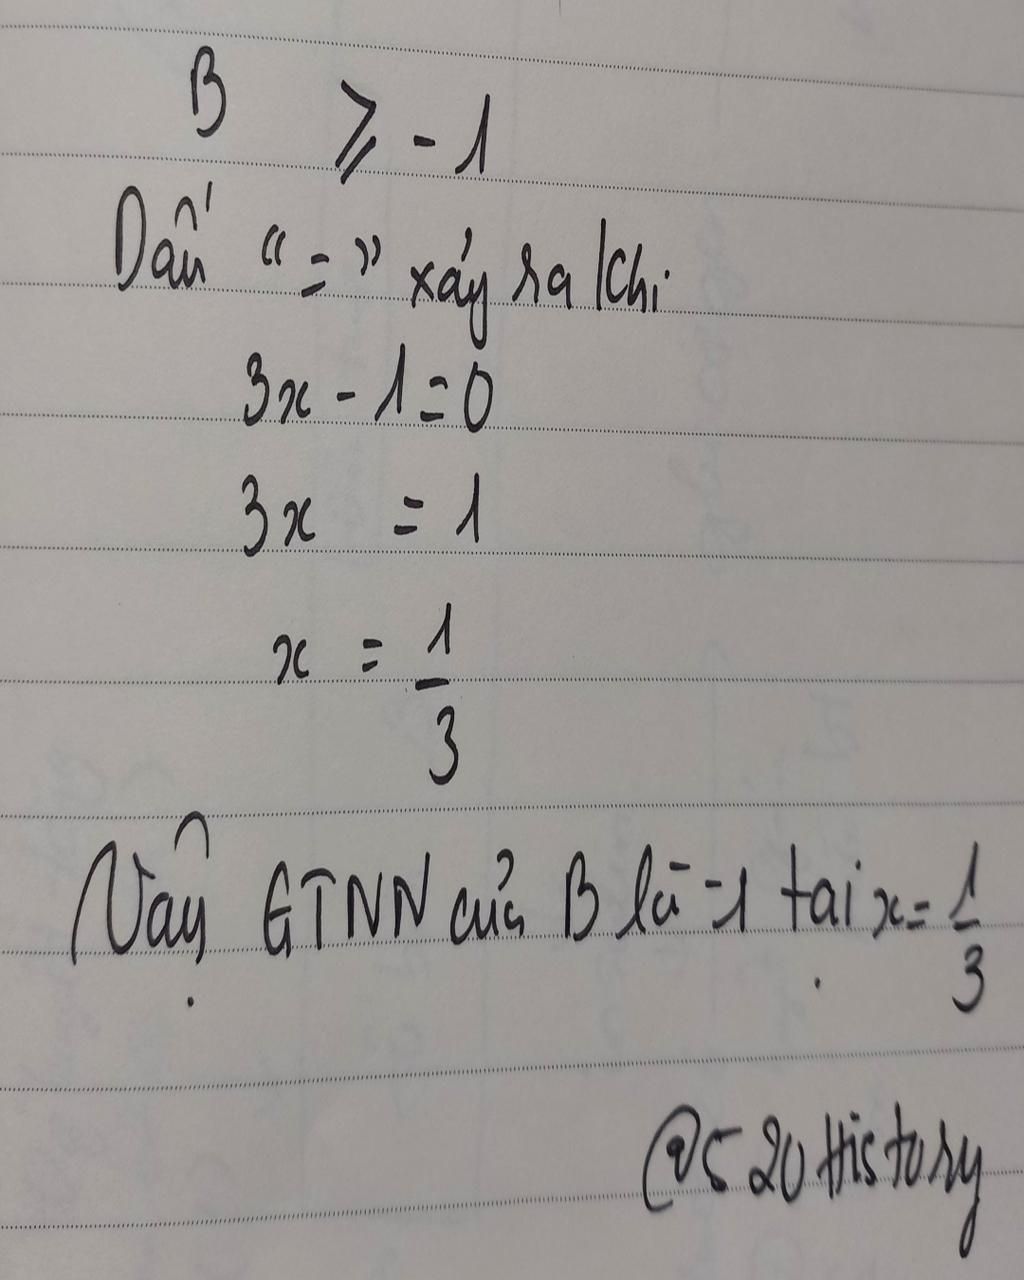 B ⩾ -1
Dấu "=" xảy ra khi
3x - 1 = 0
3x = 1
x = 1/3
Vậy GTNN của B là -1 tại x = 1/3
@520History